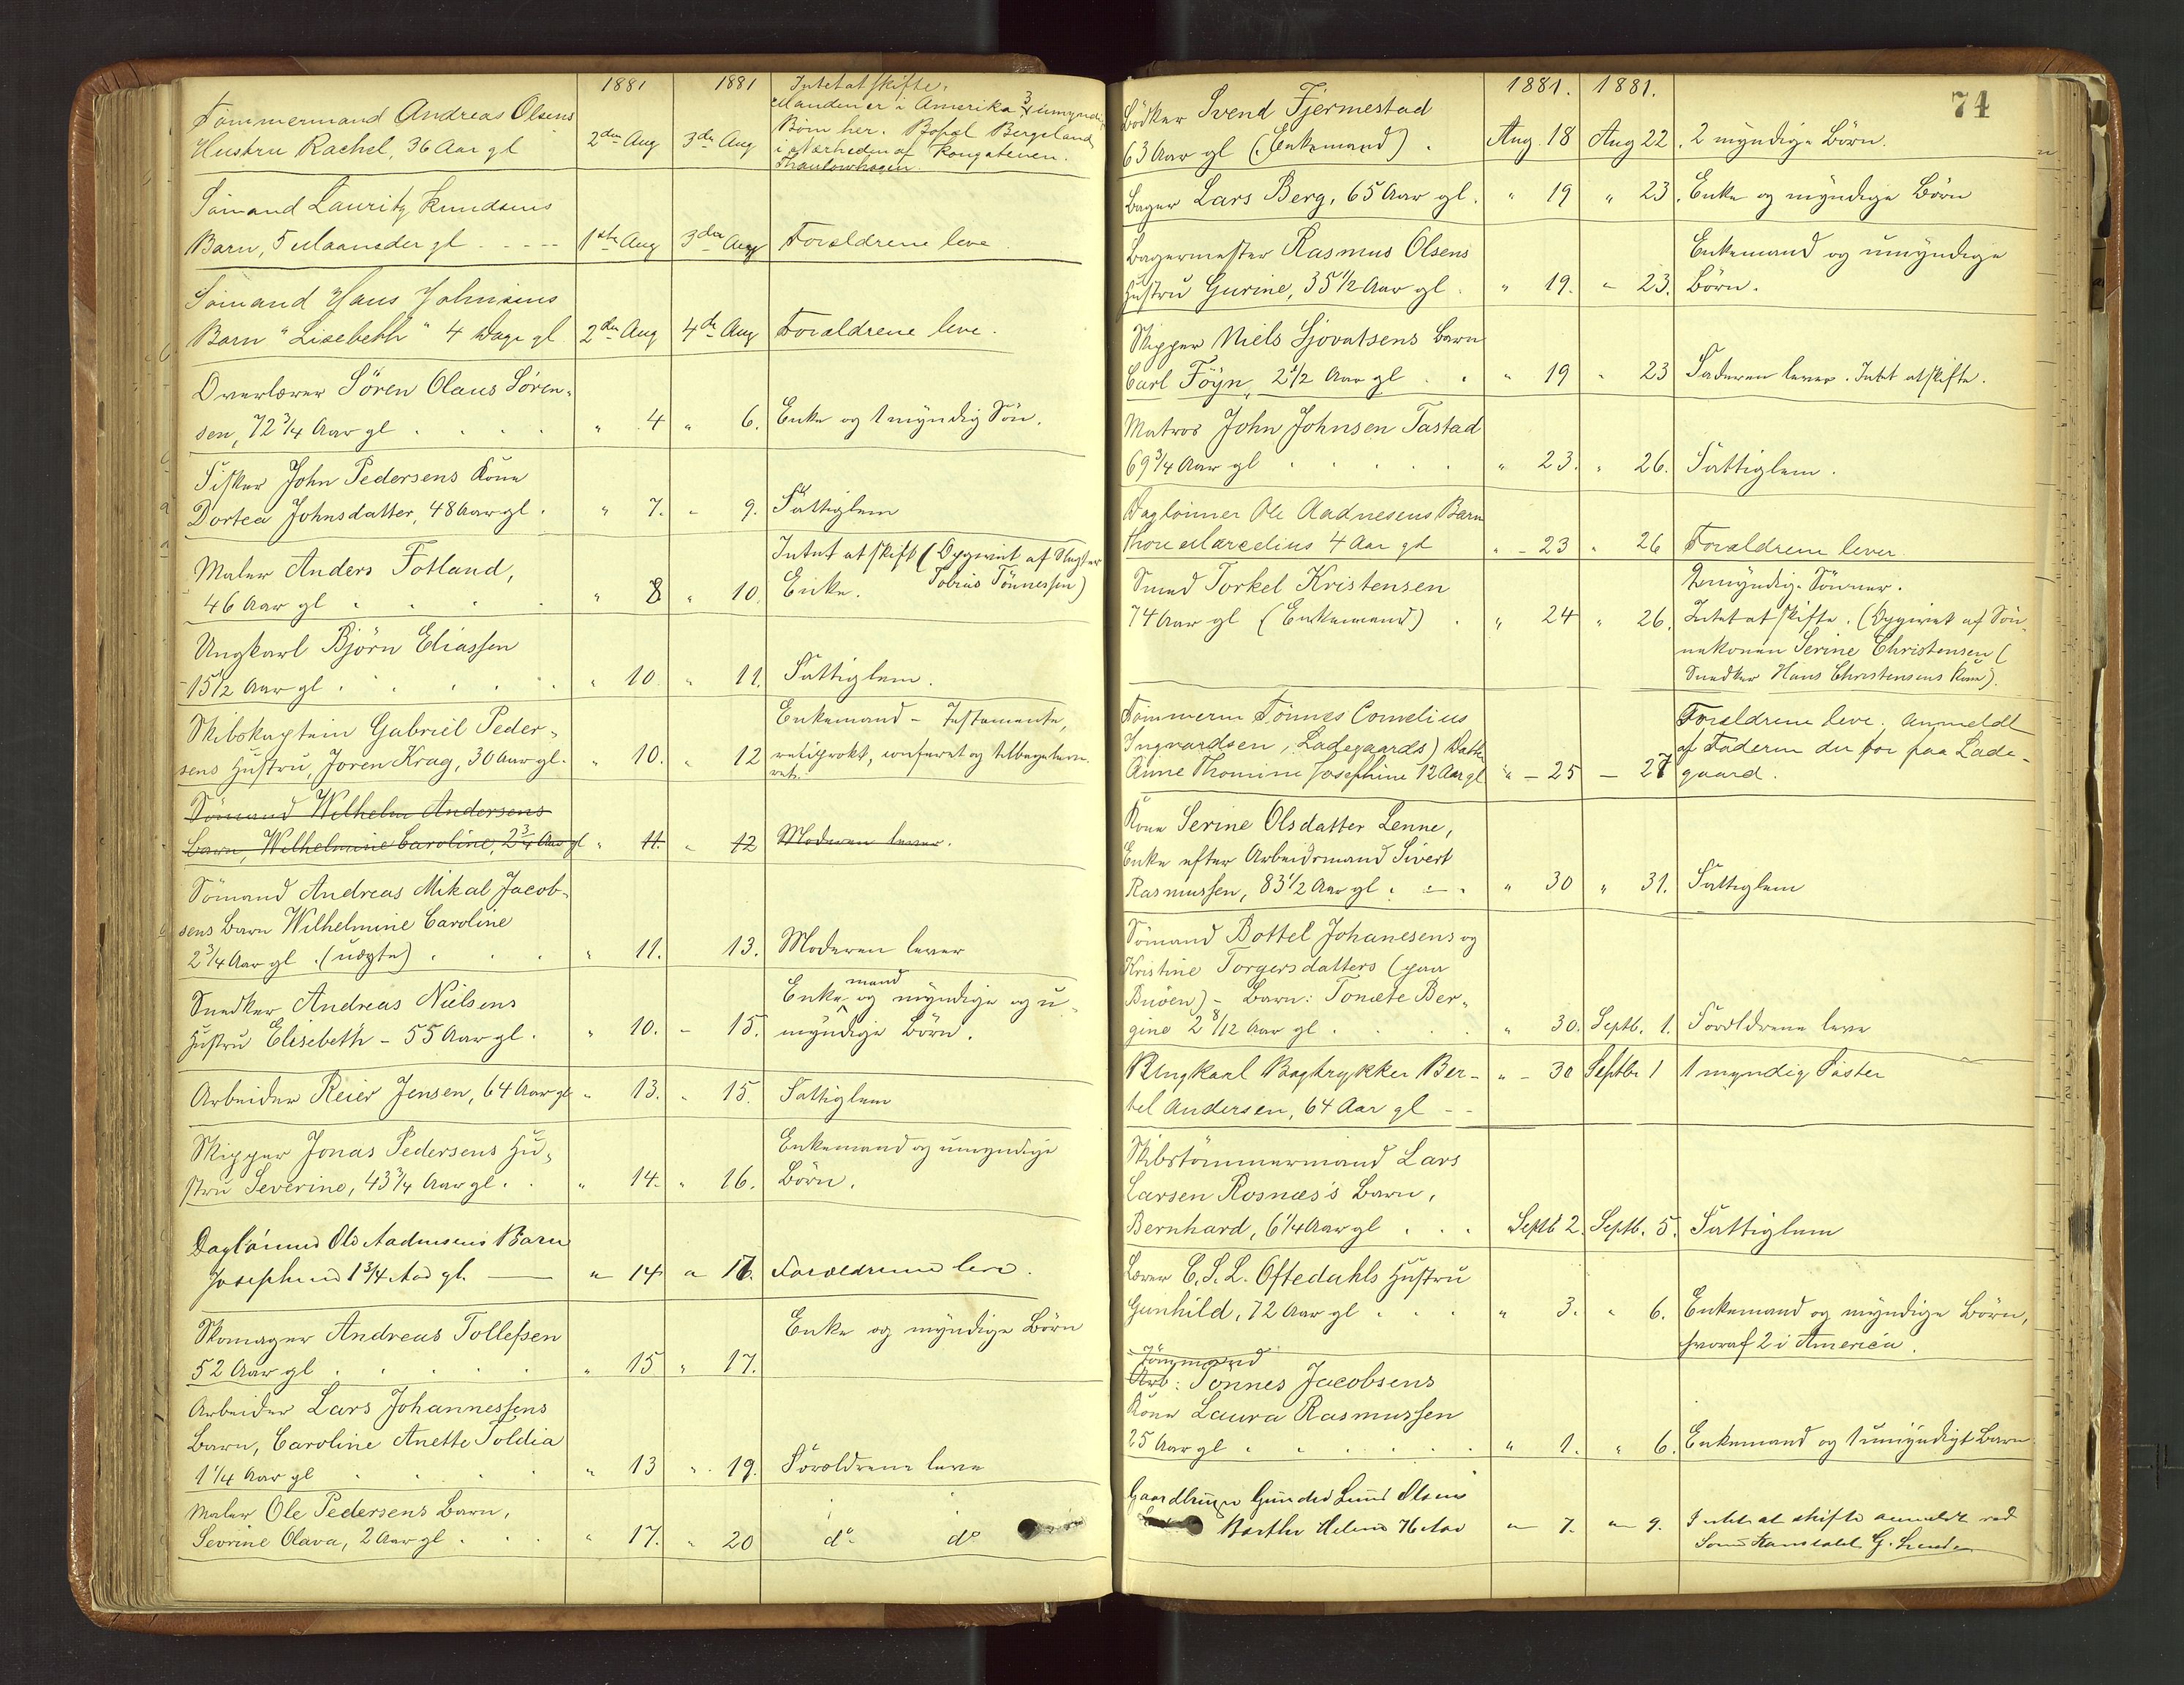 1881 1881 Intet at skifte.
Tømmermand Andreas Olsens Manden er i Amerika 3 umyndige
Hustru Rachel, 36 Aar gl 2den Aug 3de Aug Børn her. Bopæl Bergeland
i Nærheden af Kongsteinen.
Thaulowhagen.
Sømand Lauritz Knudsens
Barn, 5 Maaneder gl 1ste Aug 3die Aug Forældrene leve
Sømand Hans Johnsens
Barn "Lisebeth" 4 Dage gl 2den Aug 4de Aug Forældrene leve.
Overlærer Sören Olaus Sören-
sen, 72 3/4 Aar gl " 4 " 6. Enke og 1 myndig Sön.
Fisker John Pedersens Kone
Dortea Johnsdatter, 48 Aar gl. " 7. " 9. Fattiglem
Maler Anders Fotland, Intet at skifte (Opgivet af Slagter
46 Aar gl " 8 " 10. Enke. Tobias Tönnessen)
Ungkarl Björn Eliassen
15 1/2 Aar gl " 10 " 11. Fattiglem.
Skibskaptein Gabriel Peder- Enkemand - Testamente,
sens Hustru, Joren Krag, 30 Aar gl. " 10. " 12 reciprokt, confereret og tilbageleve-
ret.
Sömand Wilhelm Andersens
Barn, Wilhelmine Caroline, 2 3/4 Aar gl " 11. " 12 Moderen lever.
Sömand Andreas Mikal Jacob-
sens Barn Wilhelmine Caroline
2 3/4 Aar gl. (uægte) " 11. 13. Moderen lever
Snedker Andreas Nielsens Enkemand og myndige og u-
Hustru Elisebeth - 55 Aar gl. " 10. - 15. myndige Börn.
Arbeider Reier Jensen, 64 Aar gl " 13. " 15. Fattiglem
Skipper Jonas Pedersens Hu- Enkemand og umyndige
stru Severine, 43 3/4 Aar gl. " 14. " 16. Börn.
Daglönner Ole Aadnesens Barn
Josephine 1 3/4 Aar gl. " 14 " 17. Forældrene leve.
Skomager Andreas Tollefsen Enke og myndige Börn
52 Aar gl " 15 " 17.
Arbeider Lars Johannessens
Barn, Caroline Anette Toldia
1 1/4 Aar gl " 13 " 19. Forældrene leve
Maler Ole Pedersens Barn,
Sevrine Olava, 2 Aar gl. " 17. " 20 do do
74
1881. 1881.
Bödker Svend Fjermestad
63 Aar gl (Enkemand). Aug. 18 Aug 22. 2 myndige Börn.
Bager Lars Berg, 65 Aar gl. " 19 " 23. Enke og myndige Börn
Bagermester Rasmus Olsens Enkemand og umyndige
Hustru Gurine, 35 1/2 Aar gl. " 19. " 23. Börn.
Skipper Niels Sjovatsens Barn
Carl Föyn, 2 1/2 Aar gl " 19 " 23 Faderen lever. Intet at skifte.
Matros John Johnsen Tastad
69 3/4 Aar gl " 23. " 26. Fattiglem.
Daglönner Ole Aadnesens Barn
Thore Marcelius 4 Aar gl " 23 " 26 Forældrene lever
Smed Torkel Kristensen 2 myndige Sönner.
74 Aar gl (Enkemand) " 24 " 26. Intet at skifte. (Opgivet af Sön-
nekonen Serine Christensen (
Snedker Hans Christensens Kone).
Tømmerm Tönnes Cornelius Forældrene leve. Anmeldt
Ingvardsen, Ladegaards) Datter af Faderen der bor paa Lade-
Anne Thomine Josephine 12 Aar gl " - 25 - 27 gaard.
Kone Serine Olsdatter Lenne,
Enke efter Arbeidsmand Sivert
Rasmussen, 83 1/2 Aar gl. " 30 " 31. Fattiglem
Sömand Bottel Johanesens og
Kristine Torgersdatters (paa
Buöen) - Barn: Tonæte Ber-
gine 2 8/12 Aar gl. " 30. Septb. 1. Forældrene leve
Ungkarl Bogtrykker Ber- " - 30 Septbr 1 1 myndig Søster
tel Andersen, 64 Aar gl - -
Skibstömmermand Lars
Larsen Rosnæs's Barn,
Bernhard, 6 1/4 Aar gl Septb 2. Septb. 5. Fattiglem
Lærer C. S. L. Oftedahls Hustru
Gunhild, 72 Aar gl " 3. " 6. Enkemand og myndige Börn,
hvoraf 2 i America.
Tömmermd
Arb: Tönnes Jacobsens
Kone Laura Rasmussen
25 Aar gl " 1. " 6. Enkemand og 1 umyndigt Barn
Gaardbruger Gunder Lund Olsens
Barthe Helene 76 Aar " 7. " 9. Intet at skifte anmeldt ved
Sönn G. Lund